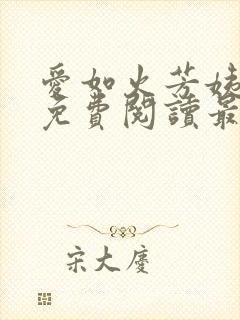 愛如火芳姨
免費閱讀最
宋大慶